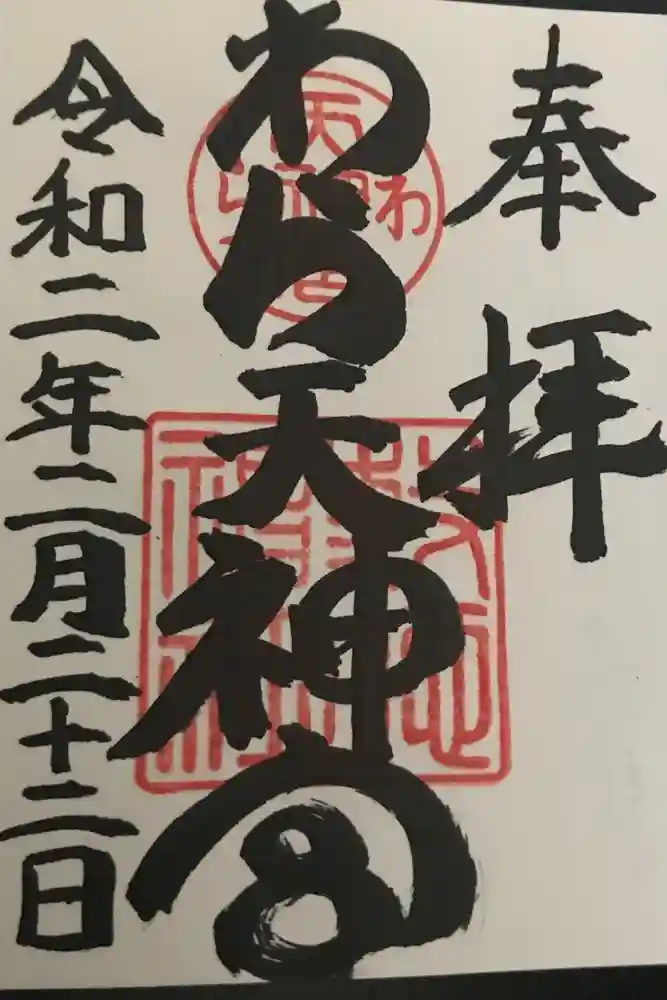 奉拝
わら天神宮
令和二年二月二十二日
敷地神社